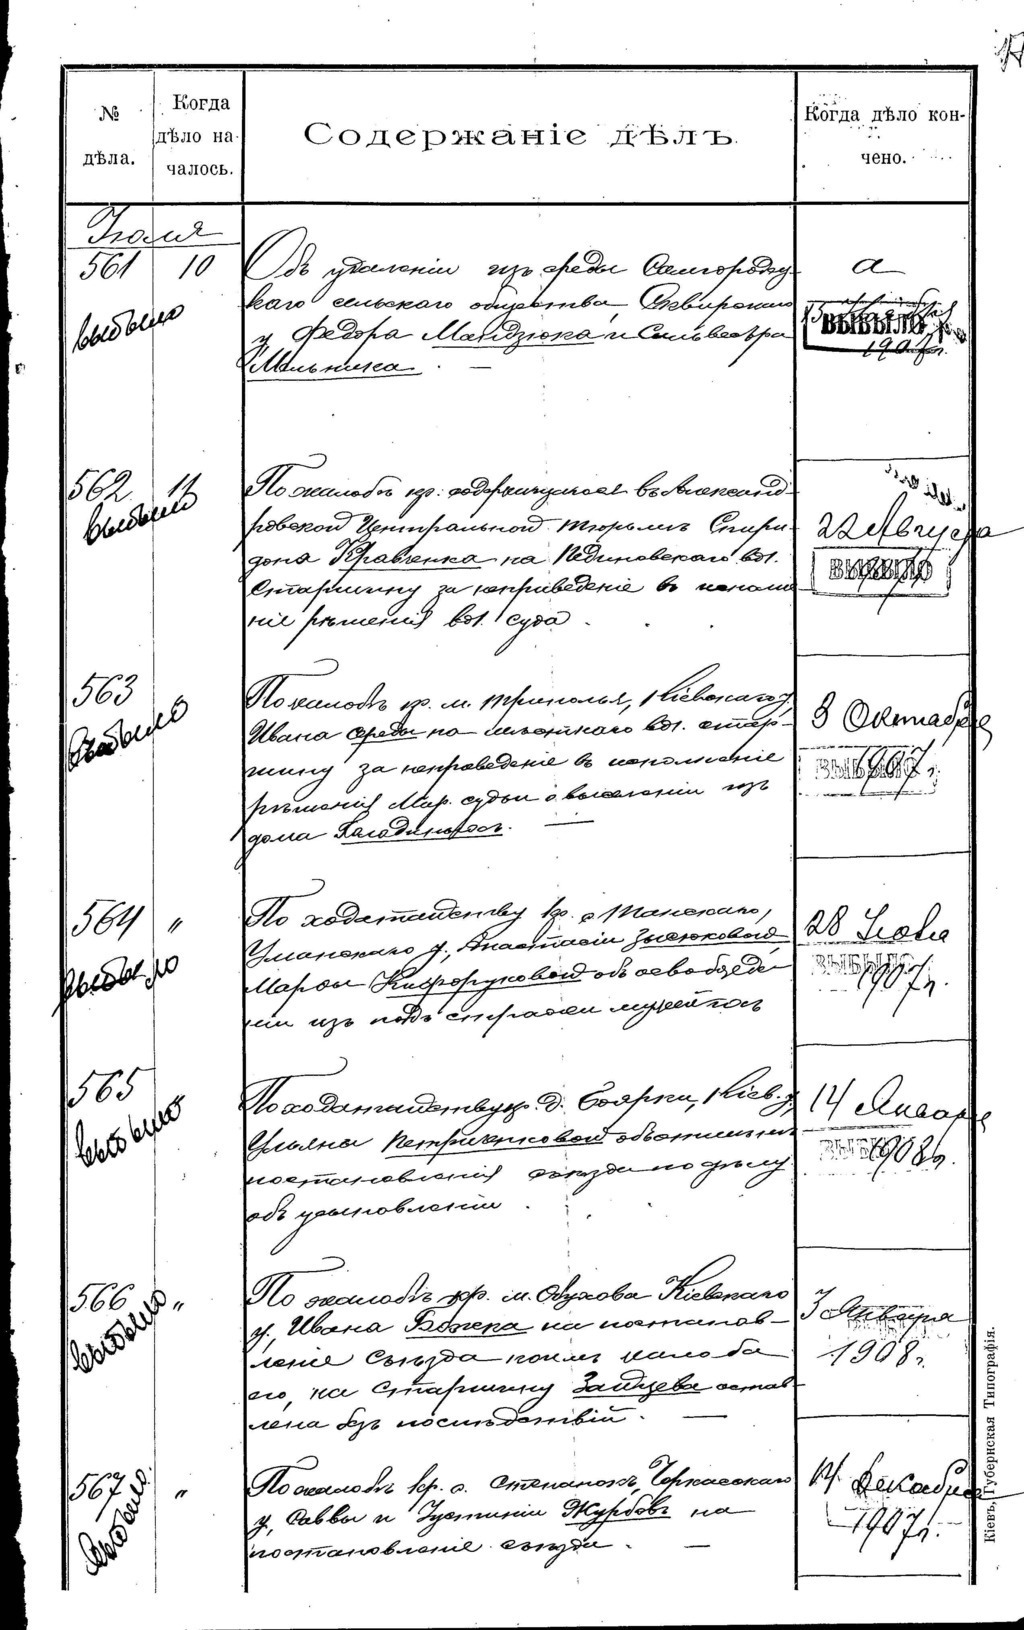 № дѣла.
Когда дѣло началось.
Содержаніе дѣлъ.
Когда дѣло кончено.
Іюля
561 10
выбыло
Объ удаленіи изъ среды Самгородоц-
каго сельскаго общества, Сквирскаго
у. Федора Мандзюка и Сильвестра
Мельника. —
ВЫБЫЛО
1907 г.
562 11
выбыло
По жалобѣ кр. содержащагося въ Александ-
ровской Центральной тюрьмѣ Спири-
дона Кравченка на
Старшину за неприведеніе въ исполне
ніе рѣшенія вол. суда.
22 Августа
ВЫБЫЛО
563
выбыло
По жалобѣ кр. м. Триполья, Кіевскаго у.
Ивана Середы на мѣстнаго вол. стар-
шину за неприведеніе въ исполненіе
рѣшенія Мир. судьи о выселеніи изъ
дома
3 Октября
1907 г.
564 "
выбыло
По ходатайству кр. с.
Уманскаго у., Анастасіи
Марфы об освобожде-
ніи изъ подъ стражи мужей ихъ
28 Іюля
1907 г.
565
выбыло
По ходатайству кр. д. Боярки, Кіев. у.
Ульяны Петриченковой объ отмѣнѣ
постановленія съѣзда по дѣлу
объ усыновленіи.
14 Января
1908 г.
566 "
выбыло
По жалобѣ кр. м. Обухова Кіевскаго
у., Ивана на постанов-
леніе Съѣзда коимъ жалоба
его, на Старшину Зайцева остав-
лена безъ послѣдствій. —
3 Января
1908 г.
567 "
выбыло
По жалобѣ кр. с. Степанокъ, Черкасскаго
у., Саввы и Устиніи Журбовъ на
постановленіе съѣзда. —
14 Декабря
1907 г.
Кіевъ, Губернская Типографія.